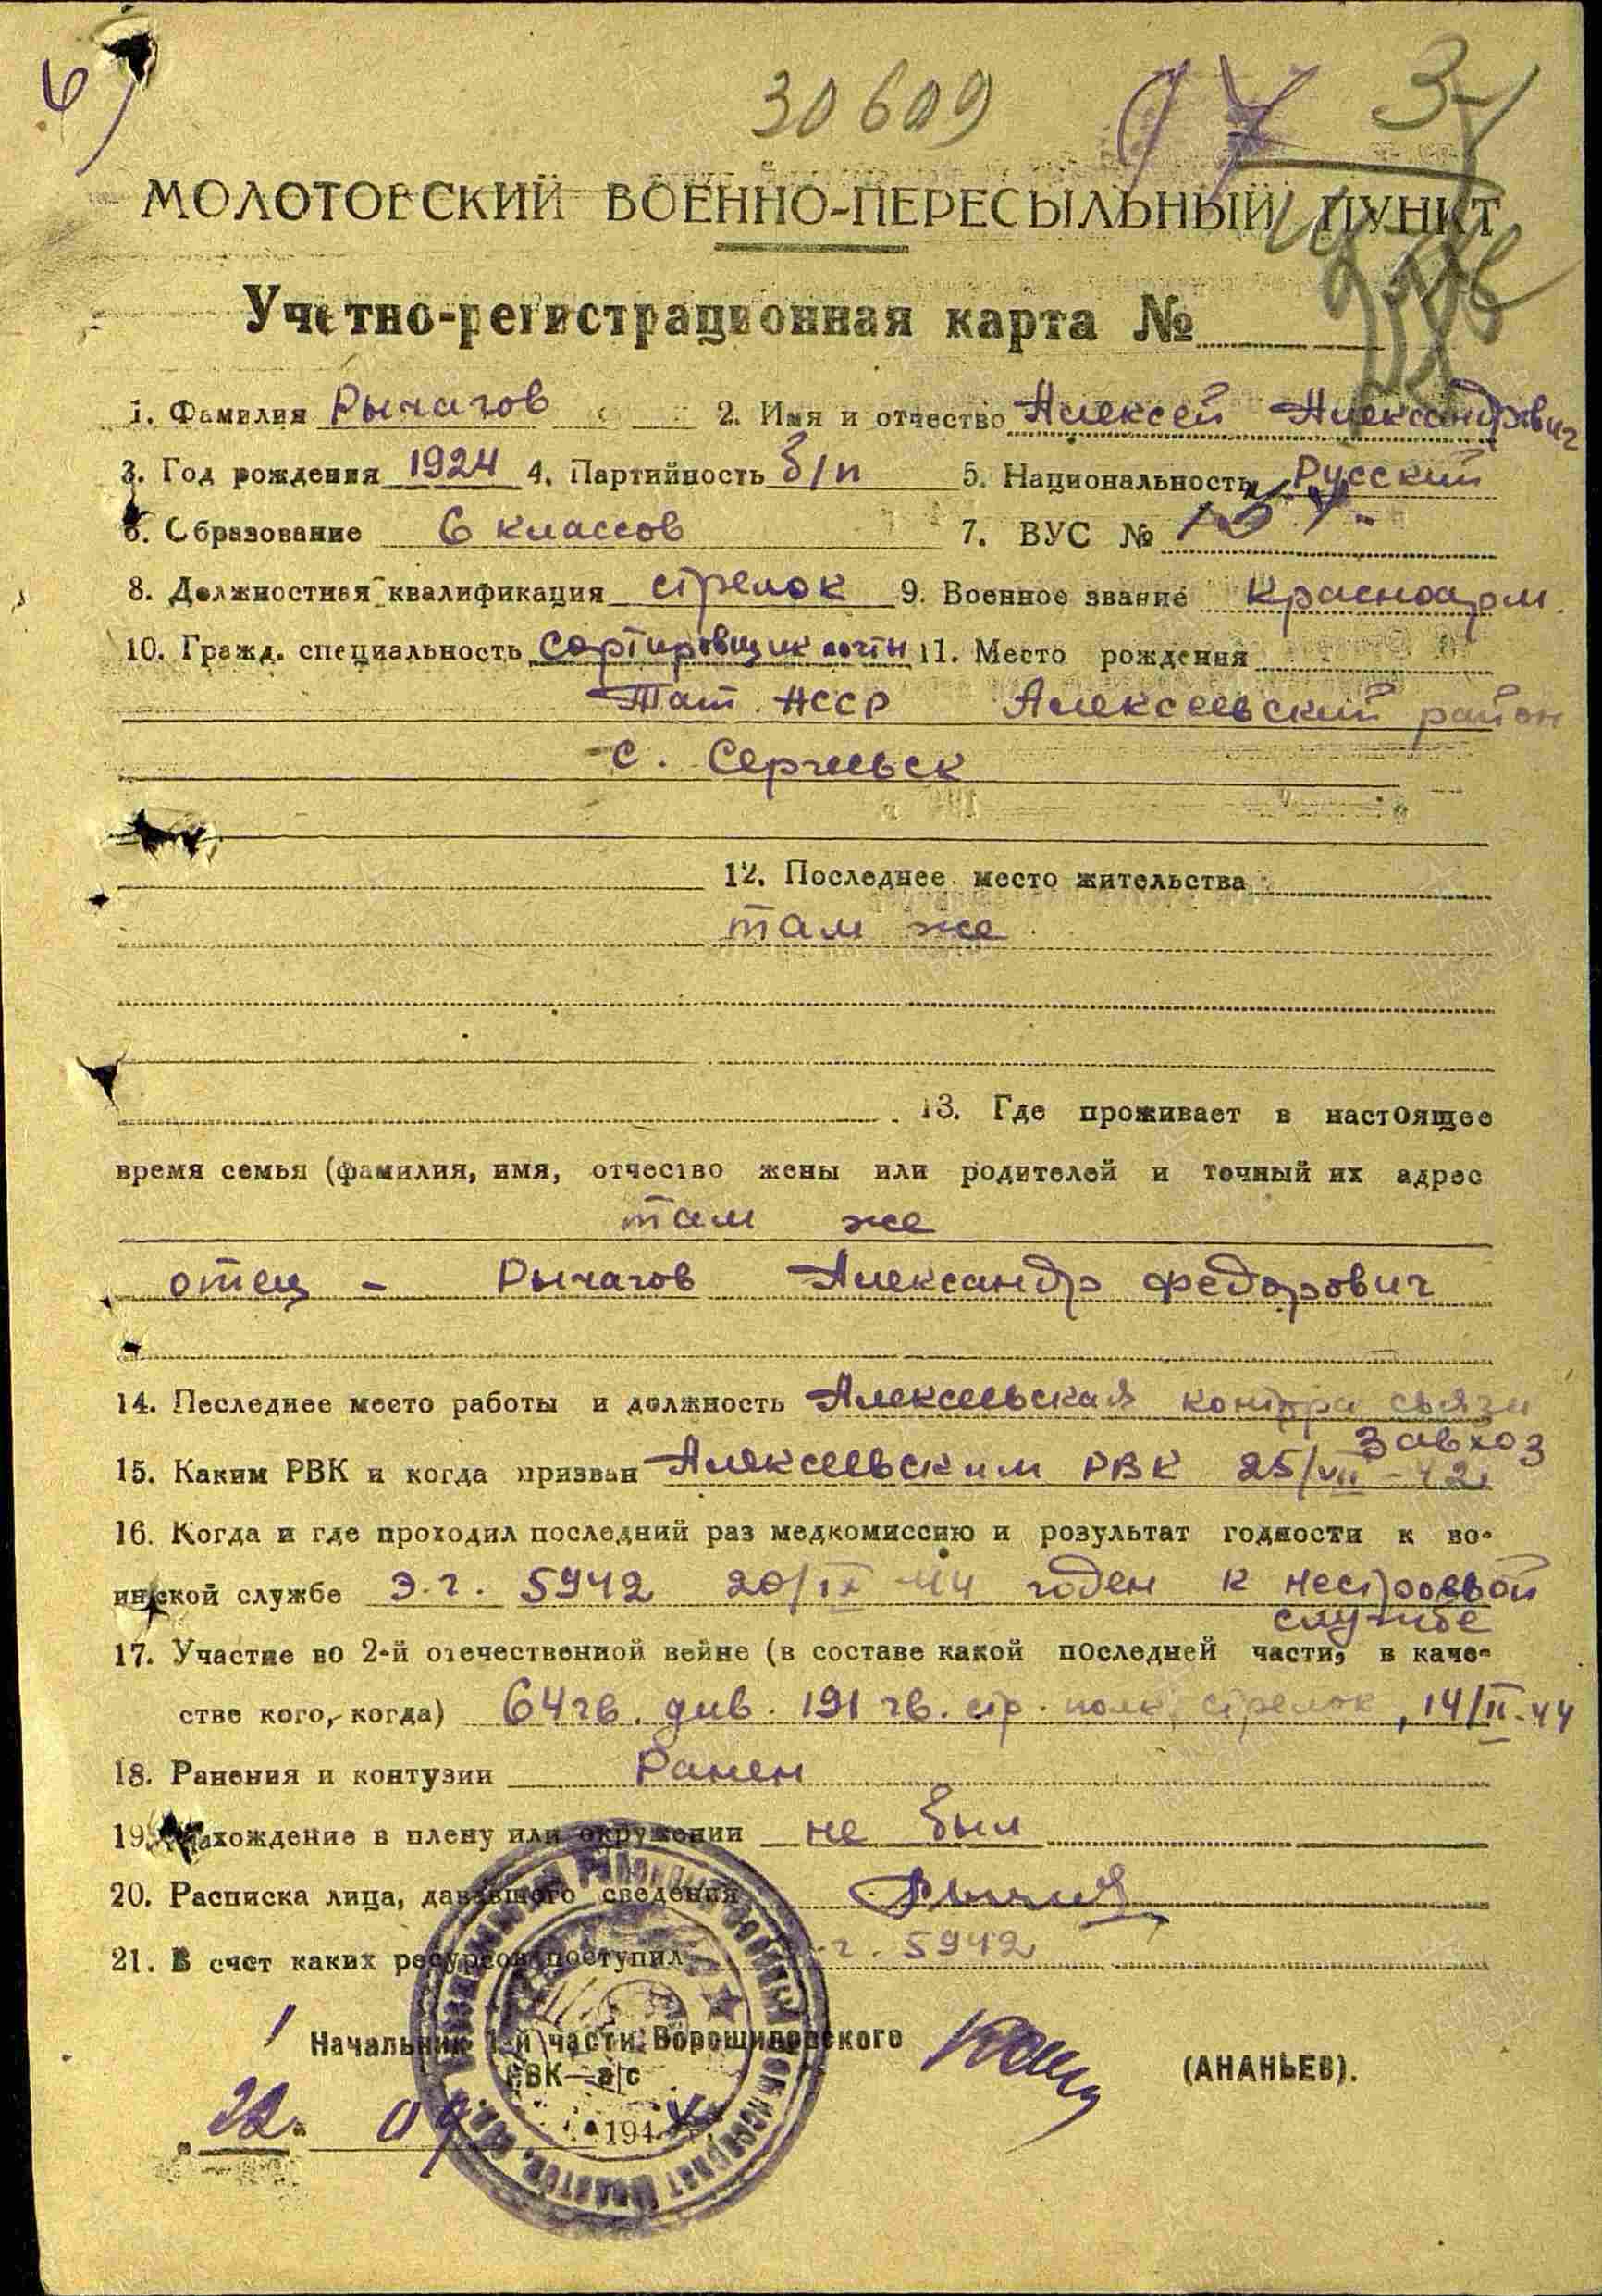 6
30609
3-
МОЛОТОВСКИЙ ВОЕННО-ПЕРЕСЫЛЬНЫЙ ПУНКТ
Учетно-регистрационная карта №
1. Фамилия Рычагов 2. Имя и отчество Алексей Александрович
3. Год рождения 1924 4. Партийность б/п 5. Национальность Русский
6. Образование 6 классов 7. ВУС № 
8. Должностная квалификация стрелок 9. Военное звание Красноарм.
10. Гражд. специальность Сортировщик почты 11. Место рождения
Тат. АССР Алексеевский район
с. Сергиевск
12. Последнее место жительства
там же
13. Где проживает в настоящее
время семья (фамилия, имя, отчество жены или родителей и точный их адрес
там же
отец - Рычагов Александр Федорович
14. Последнее место работы и должность Алексеевская контора связи
завхоз
15. Каким РВК и когда призван Алексеевским РВК 25/VII-42
16. Когда и где проходил последний раз медкомиссию и розультат годности к во-
инской службе Э.г. 5942 20/IX-44 годен к нестроевой
службе
17. Участие во 2-й отечественной войне (в составе какой последней части, в каче-
стве кого, когда) 64 гв. див. 191 гв. стр. полк, стрелок, 14/II-44
18. Ранения и контузии Ранен
19. Нахождение в плену или окружении не был
20. Расписка лица, дававшего сведения
21. В счет каких ресурсов поступил г. 5942
Начальник 1-й части Ворошиловского
РВК—а/с (АНАНЬЕВ).
„22" 09 1944